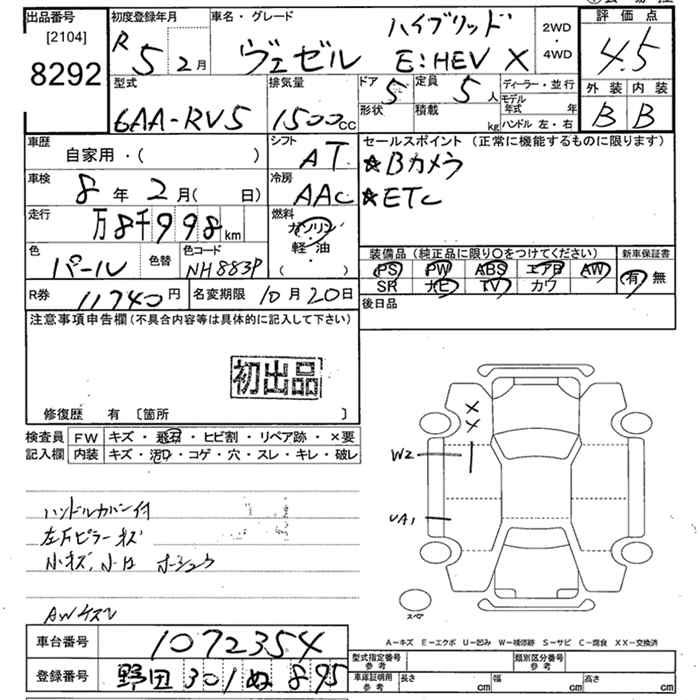 出品番号
[2104]
8292
初度登録年月
R5 2月
車名・グレード
ハイブリッド
ヴェゼル E:HEV X
2WD
・
4WD
評価点
4.5
外装 内装
B B
型式
6AA-RV5
排気量
1500cc
ドア 5
定員 5人
形状
積載 kg
ディーラー・並行
モデル年式 年
ハンドル 左・右
車歴
自家用・( )
シフト
AT
セールスポイント(正常に機能するものに限ります)
☆Bカメラ
☆ETC
車検
8年2月( 日)
冷房
AAC
走行
万8千998km
燃料
ガソリン
軽油
( )
色
パール
色替
色コード
NH883P
装備品(純正品に限り〇をつけてください)
新車保証書
PS PW ABS エアB AW
SR ナビ TV カワ
有・無
R券 11740円
名変期限 10月20日
後日品
注意事項申告欄(不具合内容等は具体的に記入して下さい)
初出品
修復歴 有 〔箇所 〕
検査員記入欄
FW キズ・飛石・ヒビ割・リペア跡・×要
内装 キズ・汚れ・コゲ・穴・スレ・キレ・破レ
ハンドルカバー付
左Fピラーキズ
小キズ、小凹 ホシュウ
AWキズ
X
X
W2
UA1
スペア
A-キズ E-エクボ U-凹み W-補修跡 S-サビ C-腐食 XX-交換済
車台番号
1072354
登録番号
野田 301 ぬ 895
型式指定番号
参考
類別区分番号
参考
車庫証明用
参考
長さ cm
幅 cm
高さ cm